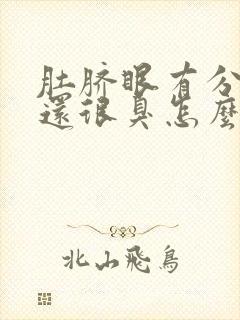 肚脐眼有分
還很臭怎麼
北山飛鳥